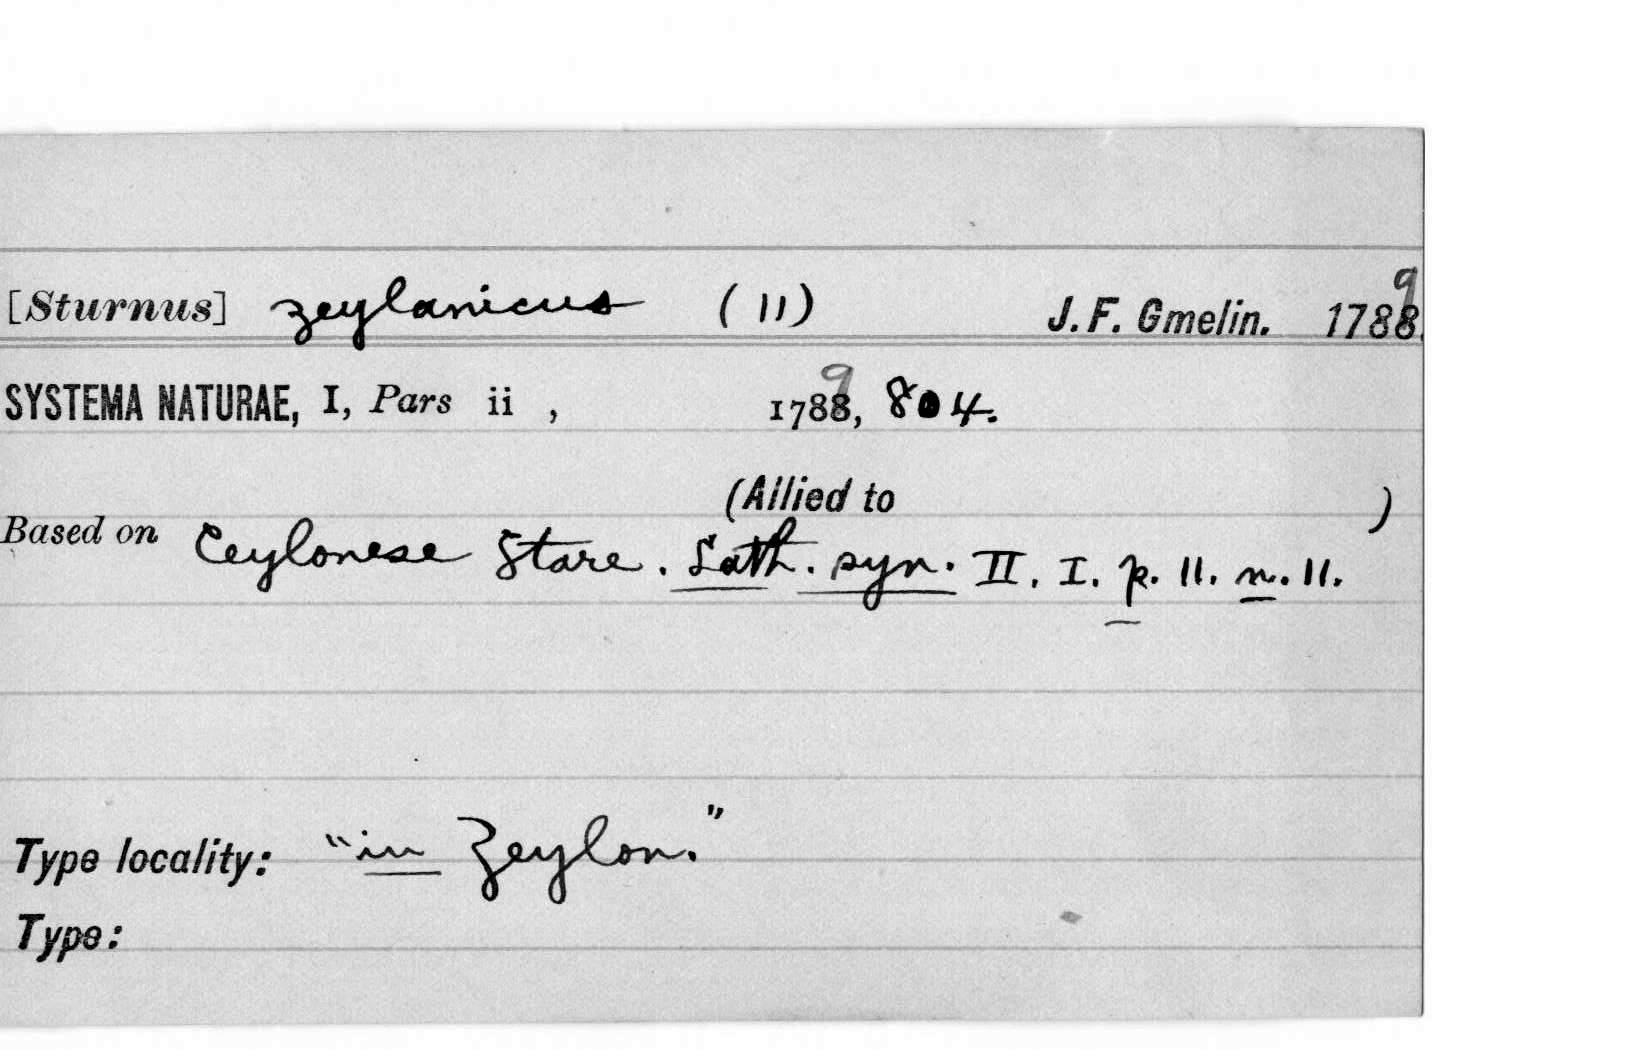 [Sturnus] zeylanicus (11) J. F. Gmelin. 1788. 9
SYSTEMA NATURAE, I, Pars ii , 1788, 9 804.
(Allied to )
Based on Ceylonese Stare. Lath. syn. II. I. p. 11. n. 11.
Type locality: "in Zeylon."
Type: